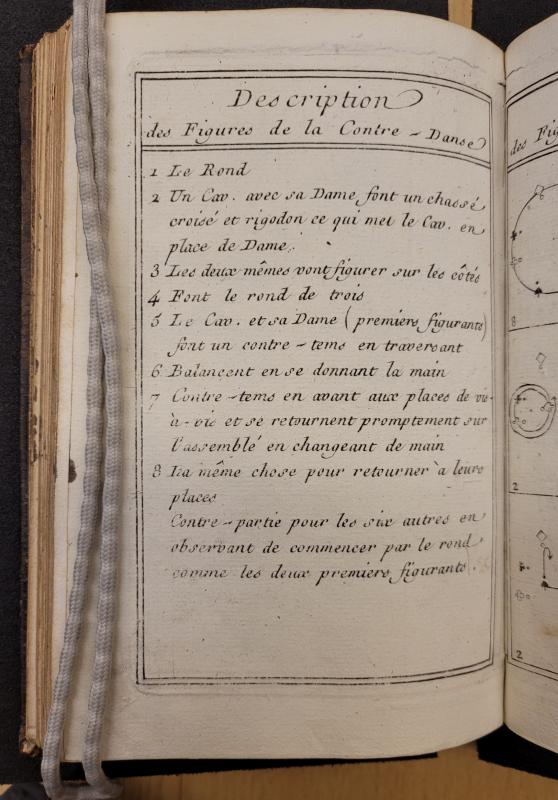 Description
des Figures de la Contre - Danse
1 Le Rond
2 Un Cav. avec sa Dame font un chassé
croisé et rigodon ce qui met le Cav. en
place de Dame.
3 Les deux mêmes vont figurer sur les côtés
4 Font le rond de trois
5 Le Cav. et sa Dame (premiers figurants)
font un contre - tems en traversant
6 Balancent en se donnant la main
7 Contre - tems en avant aux places de vis-
à-vis et se retournent promptement sur
l'assemblé en changeant de main
8 La même chose pour retourner à leurs
places
Contre - partie pour les six autres en
observant de commencer par le rond
comme les deux premiers figurants.
des Fig
8
2
2